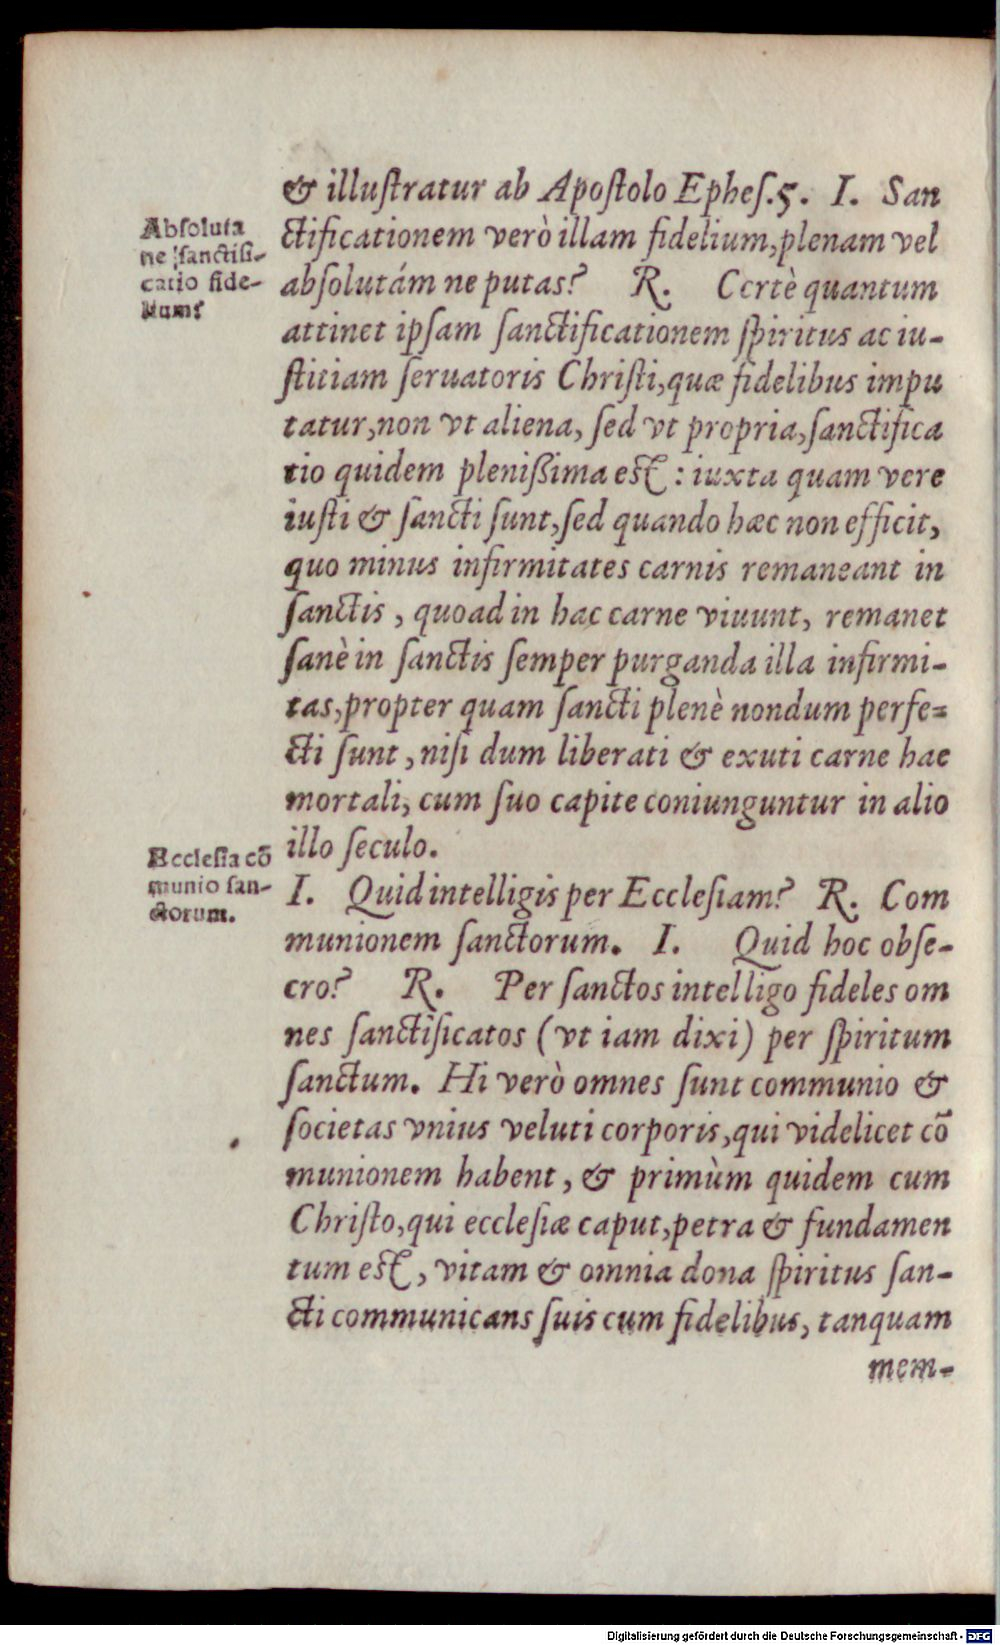 & illuſtratur ab Apoſtolo Epheſ.5. I. San
ctificationem verò illam fidelium,plenam vel
abſolutám ne putas? R. Certè quantum
attinet ipſam ſanctificationem ſpiritus ac iu-
ſtitiam ſeruatoris Chriſti,quæ fidelibus impu
tatur,non vt aliena, ſed vt propria,ſanctifica
tio quidem pleniſſima eſt : iuxta quam vere
iuſti & ſancti ſunt,ſed quando hæc non efficit,
quo minus infirmitates carnis remaneant in
ſanctis , quoad in hac carne viuunt, remanet
ſanè in ſanctis ſemper purganda illa infirmi-
tas,propter quam ſancti plenè nondum perfe=
cti ſunt , niſi dum liberati & exuti carne hac
mortali, cum ſuo capite coniunguntur in alio
illo ſeculo.
I. Quid intelligis per Eccleſiam? R. Com
munionem ſanctorum. I. Quid hoc obſe-
cro? R. Per ſanctos intelligo fideles om
nes ſanctificatos (vt iam dixi) per ſpiritum
ſanctum. Hi verò omnes ſunt communio &
ſocietas vnius veluti corporis,qui videlicet cõ
munionem habent , & primùm quidem cum
Chriſto,qui eccleſiæ caput,petra & fundamen
tum eſt , vitam & omnia dona ſpiritus ſan-
cti communicans ſuis cum fidelibus, tanquam
mem-
Abſoluta
ne ſanctifi-
catio fide-
lium?
Eccleſia cõ
munio ſan-
ctorum.
Digitalisierung gefördert durch die Deutsche Forschungsgemeinschaft - DFG